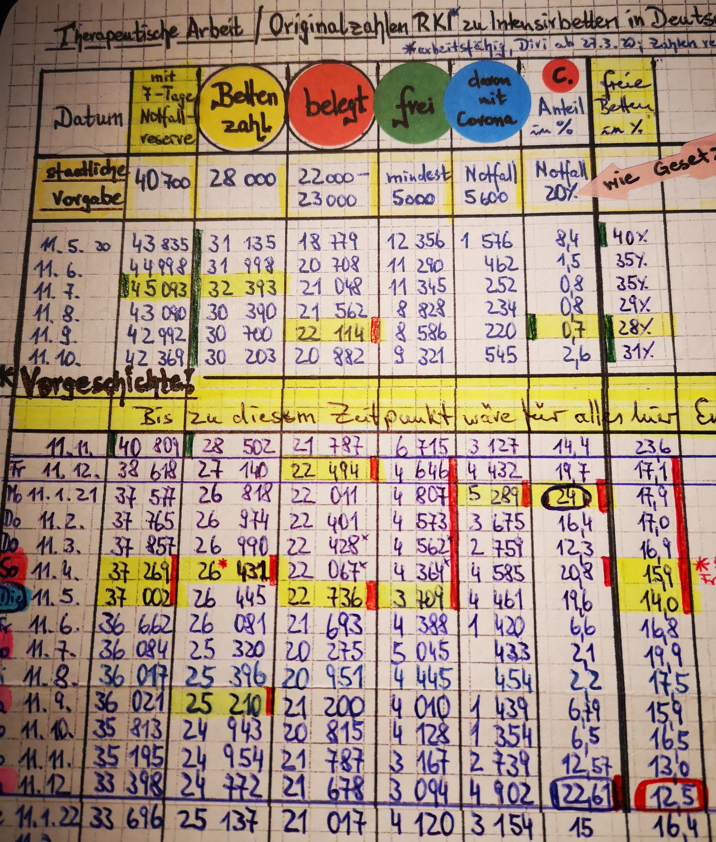 Therapeutische Arbeit / Originalzahlen RKI* zu Intensivbetten in Deuts
*arbeitsfähig, Divi ab 27.3.20; Zahlen
Datum | mit 7-Tage Notfall-reserve | Betten zahl | belegt | frei | davon mit Corona | C. Anteil in % | freie Betten in %
staatliche Vorgabe | 40 700 | 28 000 | 22 000 - 23 000 | mindest 5000 | Notfall 5 600 | Notfall 20% | wie Gesetz
11. 5. 20 | 43 835 | 31 135 | 18 779 | 12 356 | 1 576 | 8,4 | 40%
11. 6. | 44 998 | 31 998 | 20 708 | 11 290 | 462 | 1,5 | 35%
11. 7. | 45 093 | 32 393 | 21 048 | 11 345 | 252 | 0,8 | 35%
11. 8. | 43 090 | 30 390 | 21 562 | 8 828 | 234 | 0,8 | 29%
11. 9. | 42 992 | 30 700 | 22 114 | 8 586 | 220 | 0,7 | 28%
11. 10. | 42 369 | 30 203 | 20 882 | 9 321 | 545 | 2,6 | 31%
Vorgeschichte!
Bis zu diesem Zeitpunkt wäre für alles hier
11. 11. | 40 809 | 28 502 | 21 787 | 6 715 | 3 127 | 14,4 | 23,6
Fr 11. 12. | 38 618 | 27 140 | 22 494 | 4 646 | 4 432 | 19,7 | 17,1
Mo 11. 1. 21 | 37 577 | 26 818 | 22 011 | 4 807 | 5 289 | 24 | 17,9
Do 11. 2. | 37 765 | 26 974 | 22 401 | 4 573 | 3 675 | 16,4 | 17,0
Do 11. 3. | 37 857 | 26 990 | 22 428* | 4 562* | 2 759 | 12,3 | 16,9
So 11. 4. | 37 269 | 26* 431 | 22 067* | 4 364* | 4 585 | 20,8 | 15,9
Die 11. 5. | 37 002 | 26 445 | 22 736 | 3 709 | 4 461 | 19,6 | 14,0
11. 6. | 36 662 | 26 081 | 21 693 | 4 388 | 1 420 | 6,6 | 16,8
11. 7. | 36 084 | 25 320 | 20 275 | 5 045 | 433 | 2,1 | 19,9
11. 8. | 36 017 | 25 396 | 20 951 | 4 445 | 454 | 2,2 | 17,5
11. 9. | 36 021 | 25 210 | 21 200 | 4 010 | 1 439 | 6,79 | 15,9
11. 10. | 35 813 | 24 943 | 20 815 | 4 128 | 1 354 | 6,5 | 16,5
11. 11. | 35 195 | 24 954 | 21 787 | 3 167 | 2 739 | 12,57 | 13,0
11. 12 | 33 398 | 24 772 | 21 678 | 3 094 | 4 902 | 22,61 | 12,5
11. 1. 22 | 33 696 | 25 137 | 21 017 | 4 120 | 3 154 | 15 | 16,4